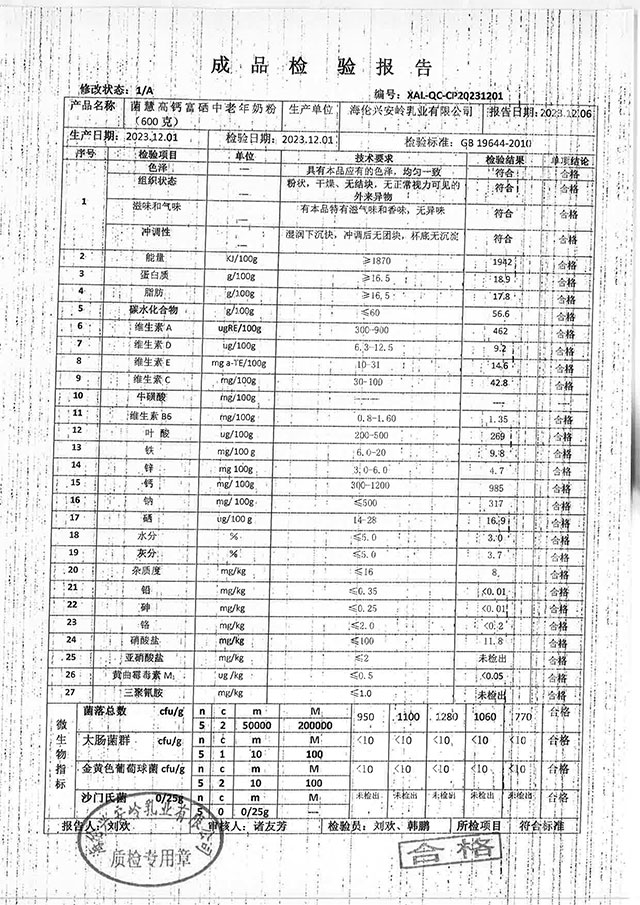 成品检验报告
修改状态：1/A 编号：XAL-QC-CP20231201
产品名称 菌慧高钙富硒中老年奶粉（600克） 生产单位 海伦兴安岭乳业有限公司 报告日期：2023.12.06
生产日期：2023.12.01 检验日期：2023.12.01 检验标准：GB 19644-2010
序号 检验项目 单位 技术要求 检验结果 单项结论
1 色泽 — 具有本品应有的色泽，均匀一致 符合 合格
组织状态 — 粉状，干燥、无结块，无正常视力可见的外来异物 符合 合格
滋味和气味 — 有本品特有滋气味和香味，无异味 符合 合格
冲调性 — 湿润下沉快，冲调后无团块，杯底无沉淀 符合 合格
2 能量 KJ/100g ≥1870 1942 合格
3 蛋白质 g/100g ≥16.5 18.9 合格
4 脂肪 g/100g ≥16.5 17.8 合格
5 碳水化合物 g/100g ≤60 56.6 合格
6 维生素A ugRE/100g 300-900 462 合格
7 维生素D ug/100g 6.3-12.5 9.2 合格
8 维生素E mg a-TE/100g 10-31 14.6 合格
9 维生素C mg/100g 30-100 42.8 合格
10 牛磺酸 mg/100g —— —— —
11 维生素B6 mg/100g 0.8-1.60 1.35 合格
12 叶酸 ug/100g 200-500 269 合格
13 铁 mg/100 g 6.0-20 9.8 合格
14 锌 mg 100g 3.0-6.0 4.7 合格
15 钙 mg/ 100g 300-1200 985 合格
16 钠 mg/ 100g ≤500 317 合格
17 硒 ug/100 g 14-28 16.9 合格
18 水分 % ≤5.0 3.0 合格
19 灰分 % ≤5.0 3.7 合格
20 杂质度 mg/kg ≤16 8 合格
21 铅 mg/kg ≤0.35 <0.01 合格
22 砷 mg/kg ≤0.25 <0.01 合格
23 铬 mg/kg ≤2.0 <0.2 合格
24 硝酸盐 mg/kg ≤100 11.8 合格
25 亚硝酸盐 mg/kg ≤2 未检出 合格
26 黄曲霉毒素M₁ ug /kg ≤0.5 <0.05 合格
27 三聚氰胺 mg/kg ≤1.0 未检出 合格
微生物指标
菌落总数 cfu/g n c m M 950 1100 1280 1060 770 合格
5 2 50000 200000
大肠菌群 cfu/g n c m M <10 <10 <10 <10 <10 合格
5 1 10 100
金黄色葡萄球菌 cfu/g n c m M <10 <10 <10 <10 <10 合格
5 2 10 100
沙门氏菌 0/25g n c m M 未检出 未检出 未检出 未检出 未检出 合格
5 0 0/25g —
报告人：刘欢 审核人：诸友芳 检验员：刘欢、韩鹏 所检项目 符合标准
海伦兴安岭乳业有限公司
质检专用章
合格